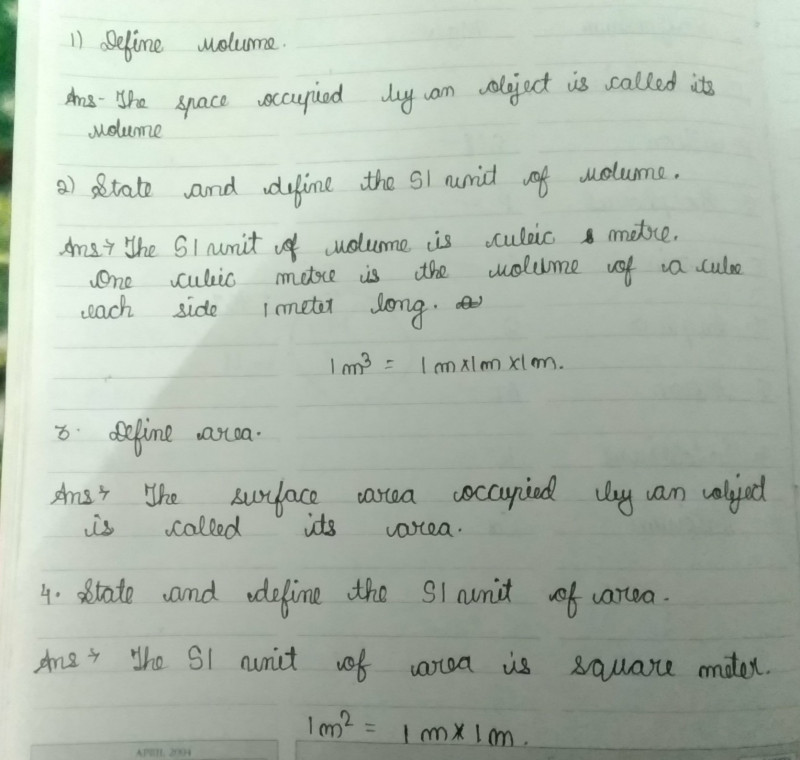 1) Define volume.
Ans- The space occupied by an object is called its
volume
2) State and define the SI unit of volume.
Ans→ The SI unit of volume is cubic metre.
One cubic metre is the volume of a cube
each side 1 meter long.
1 m³ = 1 m x 1m x 1m.
3. Define area.
Ans→ The surface area occupied by an object
is called its area.
4. State and define the SI unit of area.
Ans→ The SI unit of area is square meter.
1m² = 1 m x 1m.
APRIL 2004